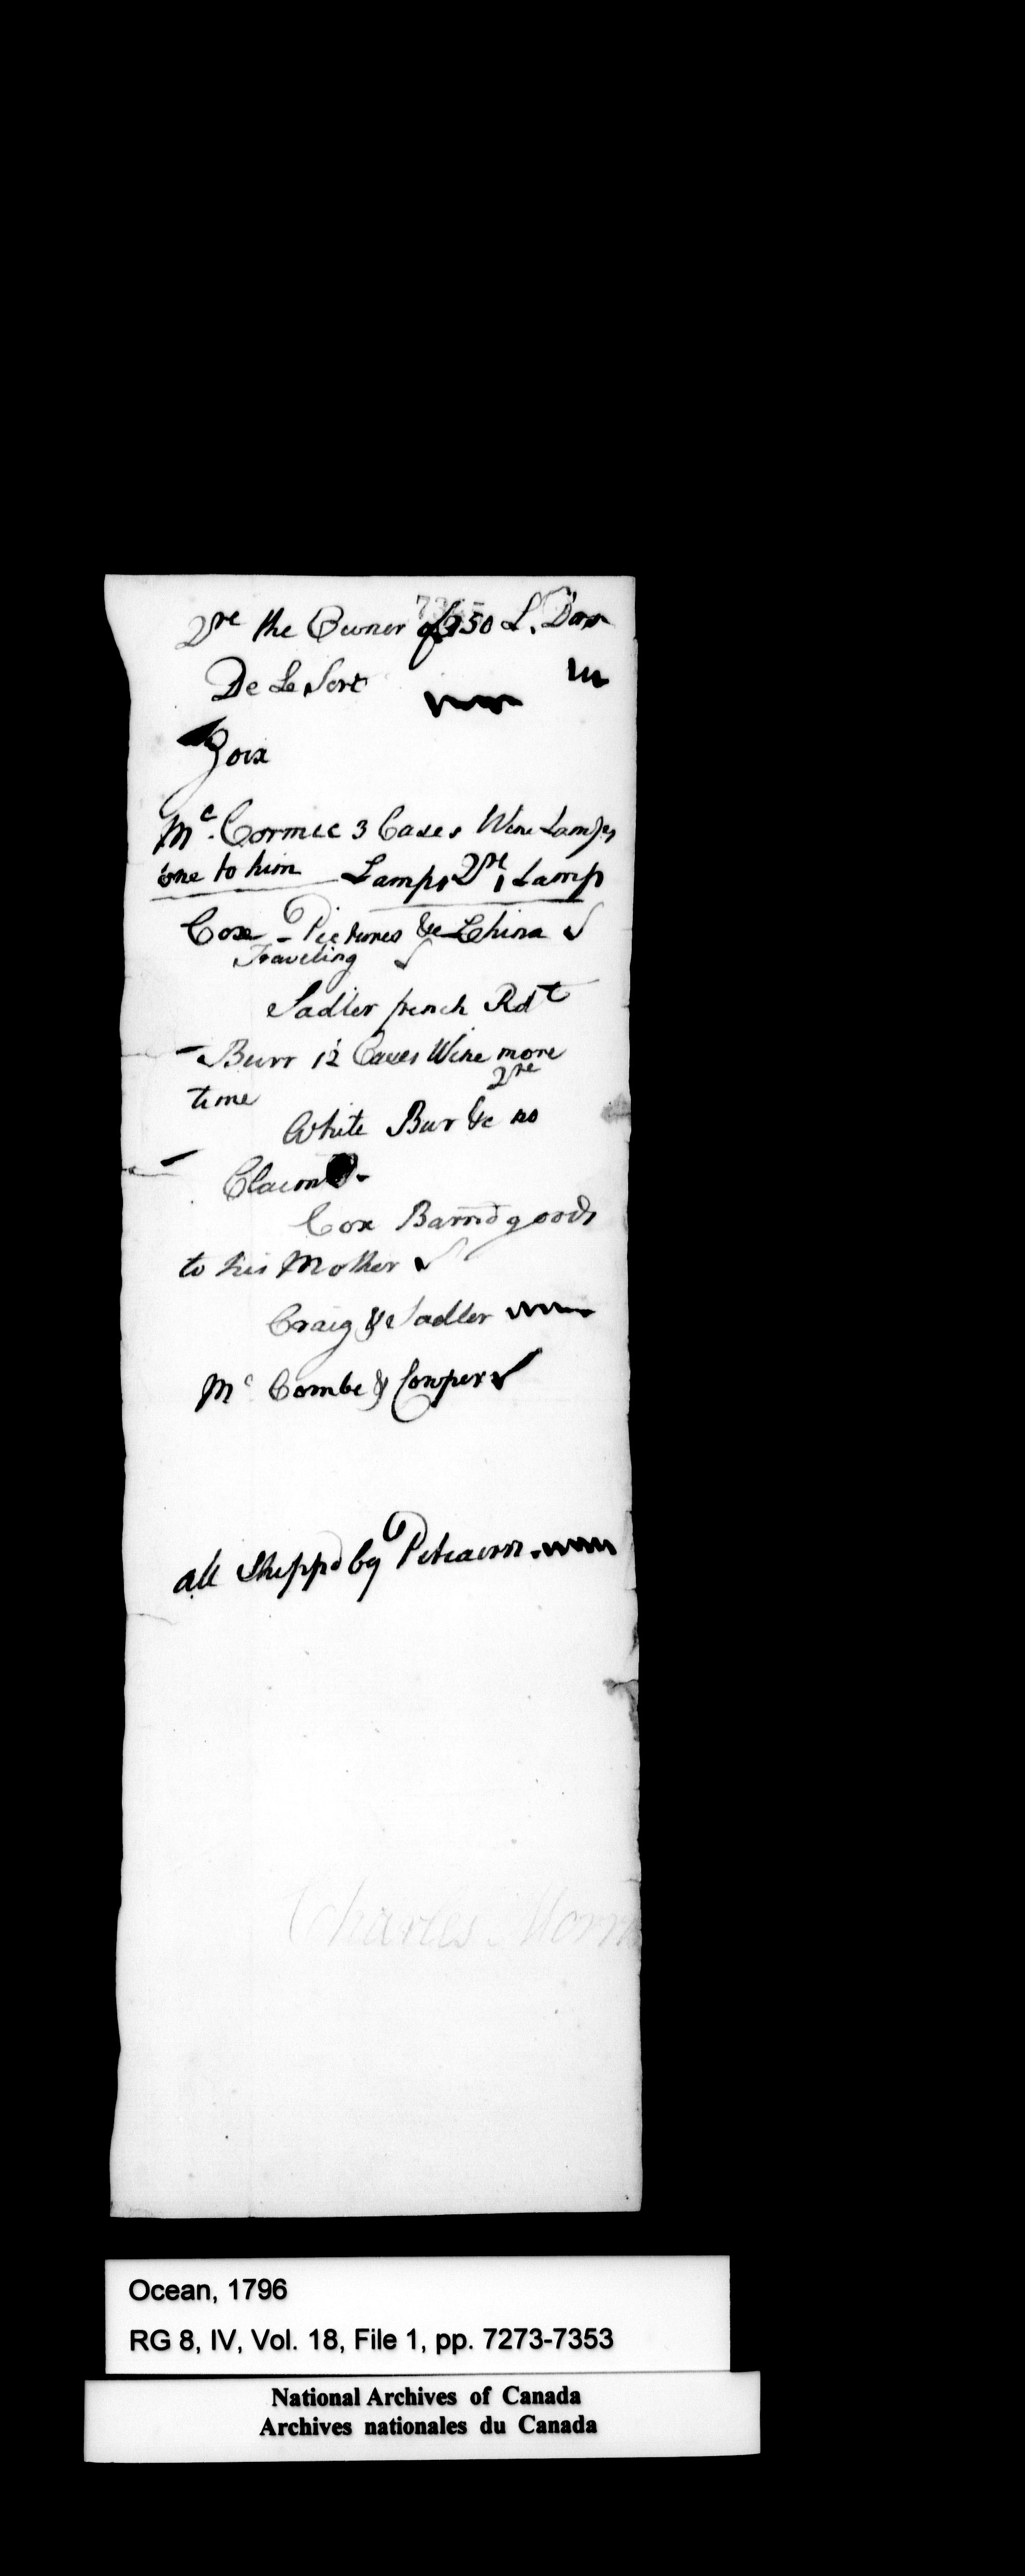 2re the Owner of 950 L. Dors
De Le Sert
Zoix
Mc. Cormic 3 Cases Wine Lamps
one to him Lamps 2re 1 Lamp
Cox - Pictures &c China
Traveling
Sadler french Rdt
- Burr 12 Cases Wine more
2re
time
White Bur &c no
Claim
Cox Barrd goods
to his Mother
Craig & Sadler
Mc Combe & Conper
all Shippd by Pitcairn
Charles Morr
Ocean, 1796
RG 8, IV, Vol. 18, File 1, pp. 7273-7353
National Archives of Canada
Archives nationales du Canada